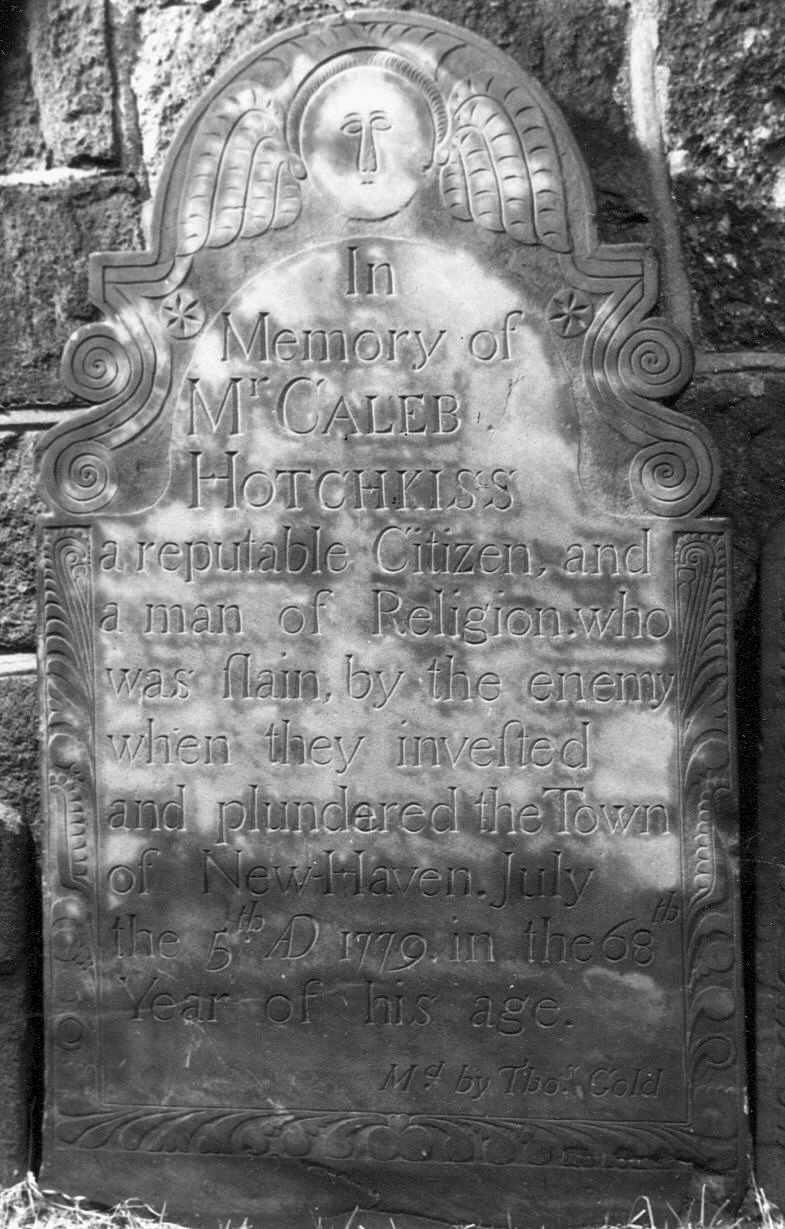 In
Memory of
Mr CALEB
HOTCHKISS
a reputable Citizen, and
a man of Religion. who
was ſlain, by the enemy
when they inveſted
and plundered the Town
of New-Haven. July
the 5th AD 1779. in the 68th
Year of his age.
Md by Thos Gold